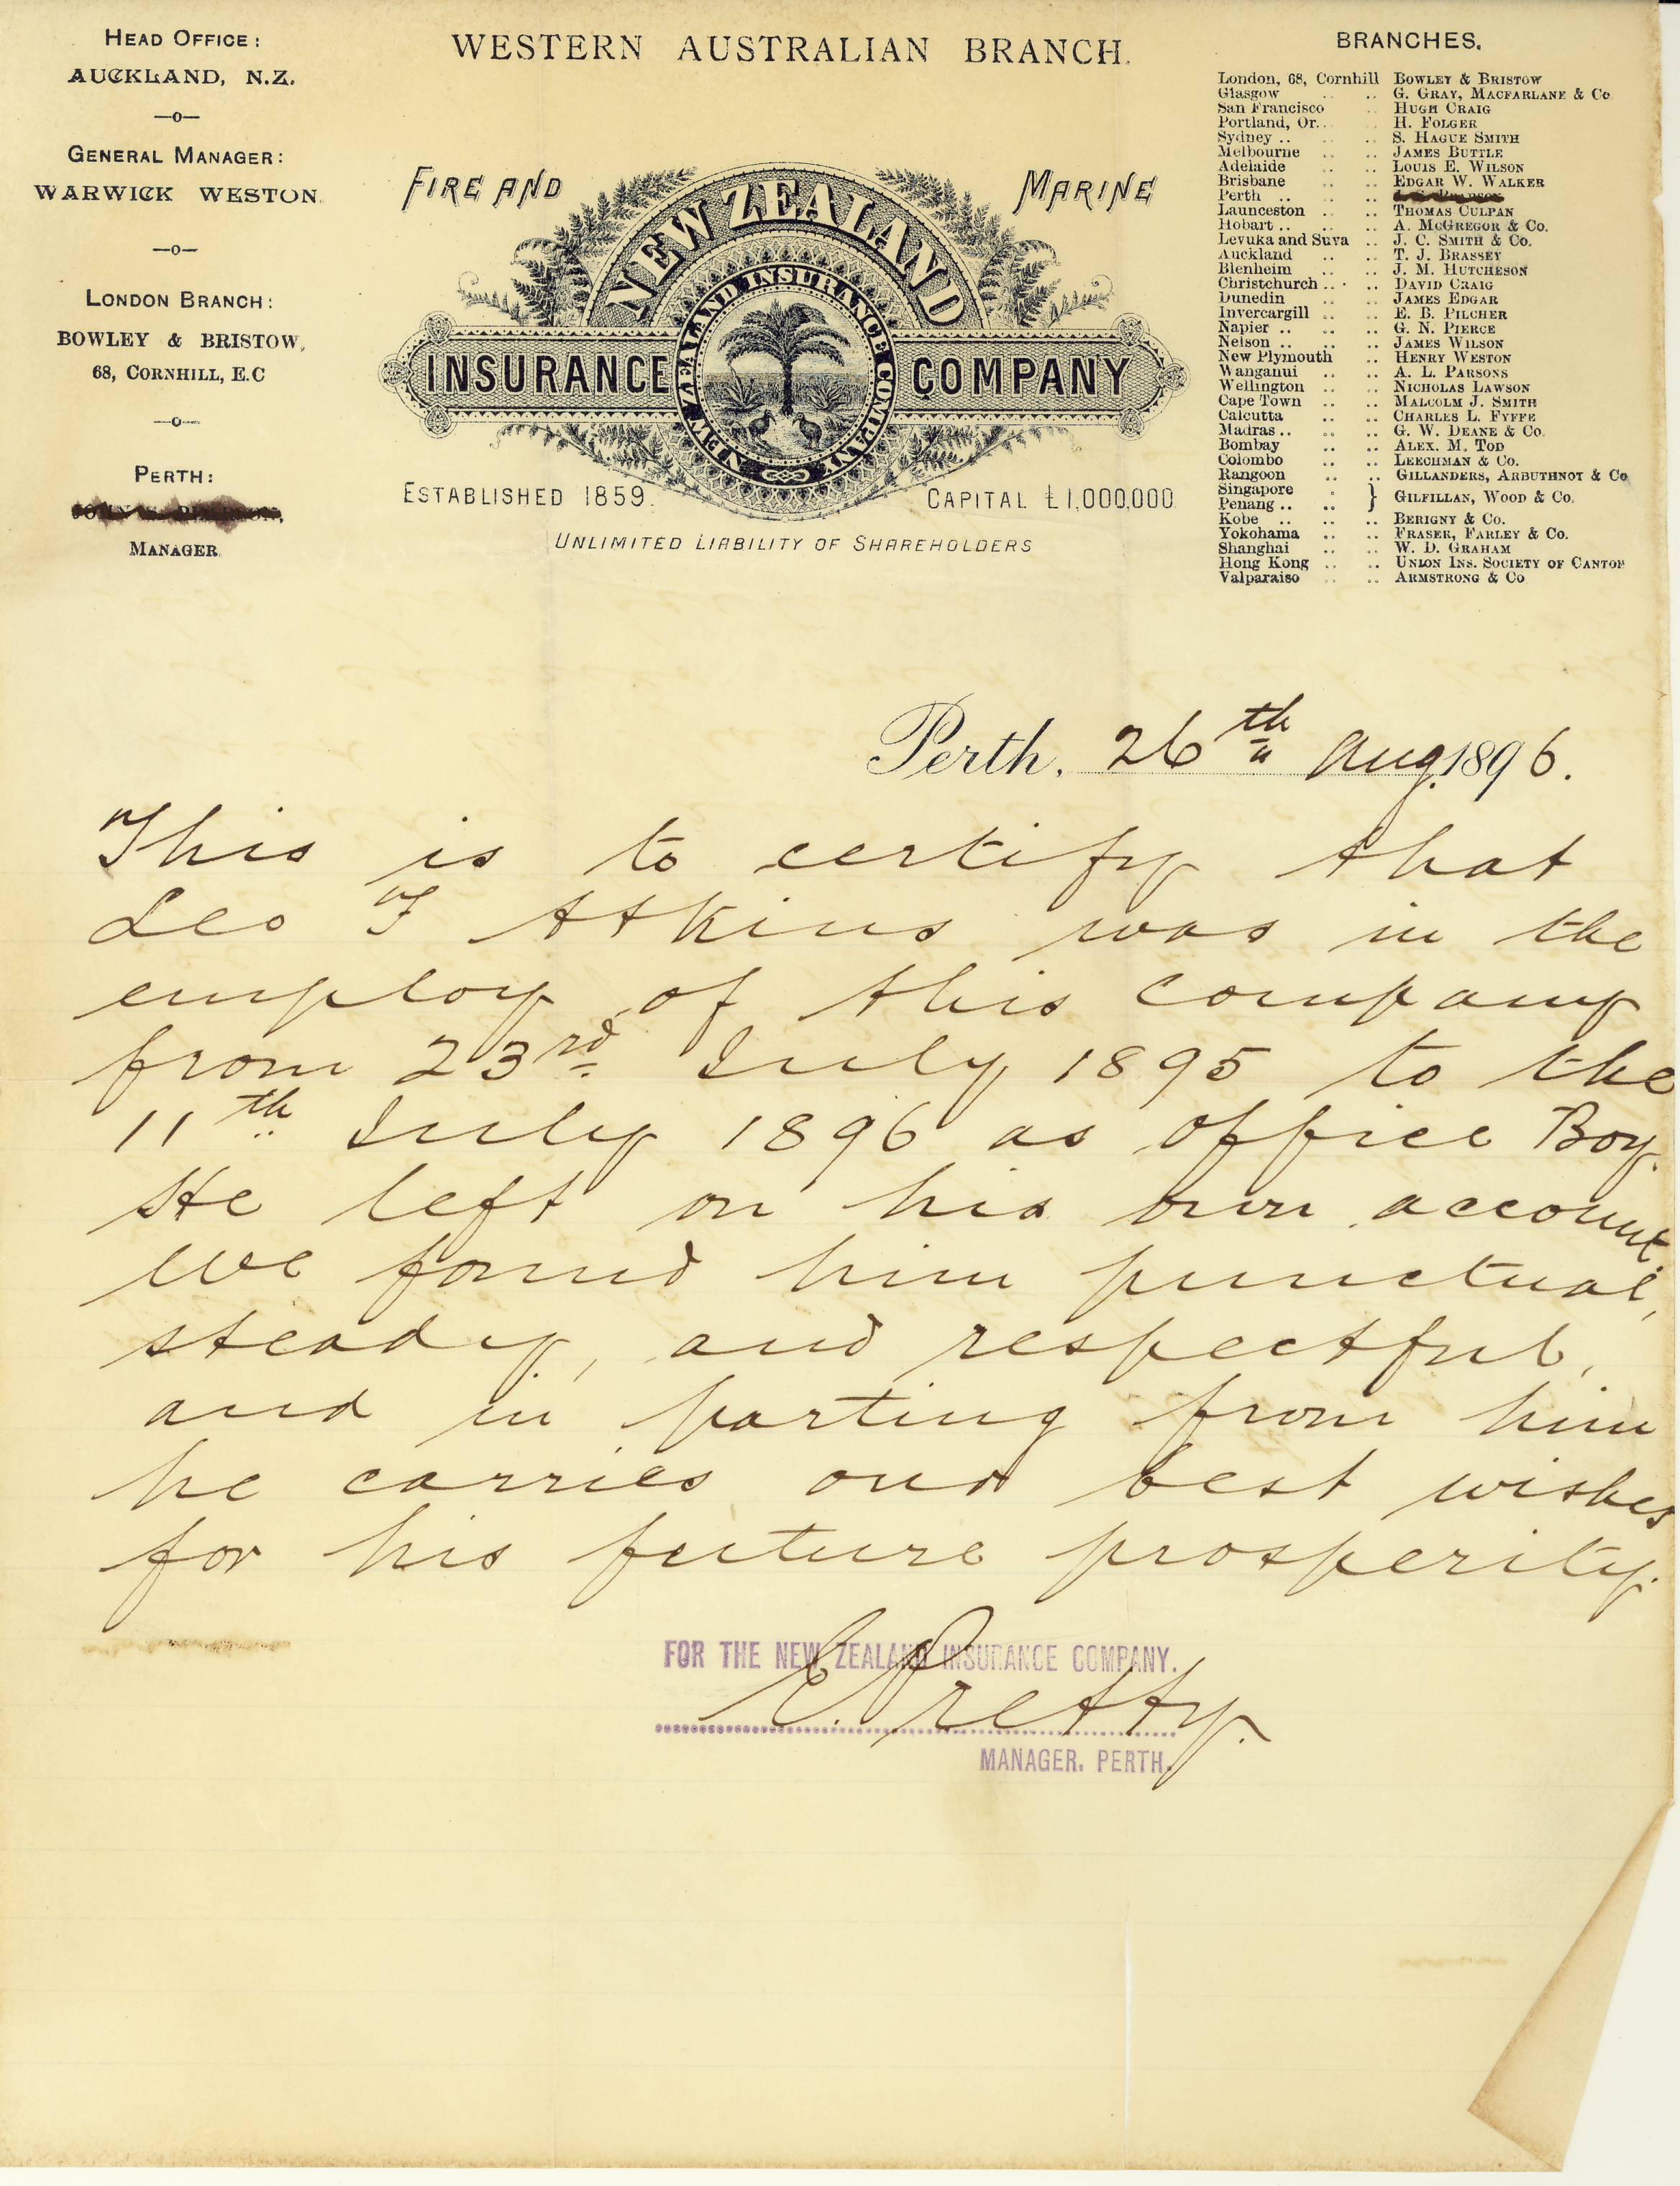 HEAD OFFICE:
AUCKLAND, N.Z.
—o—
GENERAL MANAGER:
WARWICK WESTON.
—o—
LONDON BRANCH:
BOWLEY & BRISTOW,
68, CORNHILL, E.C
—o—
PERTH:
MANAGER.
WESTERN AUSTRALIAN BRANCH.
FIRE AND MARINE
NEW ZEALAND
INSURANCE COMPANY
NEW ZEALAND INSURANCE COMPANY
ESTABLISHED 1859. CAPITAL £1,000,000
UNLIMITED LIABILITY OF SHAREHOLDERS
BRANCHES.
London, 68, Cornhill BOWLEY & BRISTOW
Glasgow .. .. G. GRAY, MACFARLANE & Co
San Francisco .. HUGH CRAIG
Portland, Or. .. .. H. FOLGER
Sydney .. .. .. S. HAGUE SMITH
Melbourne .. .. JAMES BUTTLE
Adelaide .. .. LOUIS E. WILSON
Brisbane .. .. EDGAR W. WALKER
Perth .. .. ..
Launceston .. .. THOMAS CULPAN
Hobart .. .. .. A. MCGREGOR & Co.
Levuka and Suva .. J. C. SMITH & Co.
Auckland .. .. T. J. BRASSEY
Blenheim .. .. J. M. HUTCHESON
Christchurch .. .. DAVID CRAIG
Dunedin .. .. JAMES EDGAR
Invercargill .. .. E. B. PILCHER
Napier .. .. .. G. N. PIERCE
Nelson .. .. .. JAMES WILSON
New Plymouth .. HENRY WESTON
Wanganui .. .. A. L. PARSONS
Wellington .. .. NICHOLAS LAWSON
Cape Town .. .. MALCOLM J. SMITH
Calcutta .. .. CHARLES L. FYFFE
Madras .. .. .. G. W. DEANE & Co.
Bombay .. .. ALEX. M. TOD
Colombo .. .. LEECHMAN & Co.
Rangoon .. .. GILLANDERS, ARBUTHNOT & Co
Singapore .. } GILFILLAN, WOOD & Co.
Penang .. ..
Kobe .. .. .. BERIGNY & Co.
Yokohama .. .. FRASER, FARLEY & Co.
Shanghai .. .. W. D. GRAHAM
Hong Kong .. .. UNION INS. SOCIETY OF CANTON
Valparaiso .. .. ARMSTRONG & Co
Perth, 26th Aug. 1896.
This is to certify that
Leo F Atkins was in the
employ of this company
from 23rd July 1895 to the
11th July 1896 as office Boy.
He left on his own account.
We found him punctual,
steady, and respectful,
and in parting from him
he carries our best wishes
for his future prosperity.
FOR THE NEW ZEALAND INSURANCE COMPANY.
E. Pretty.
MANAGER. PERTH.